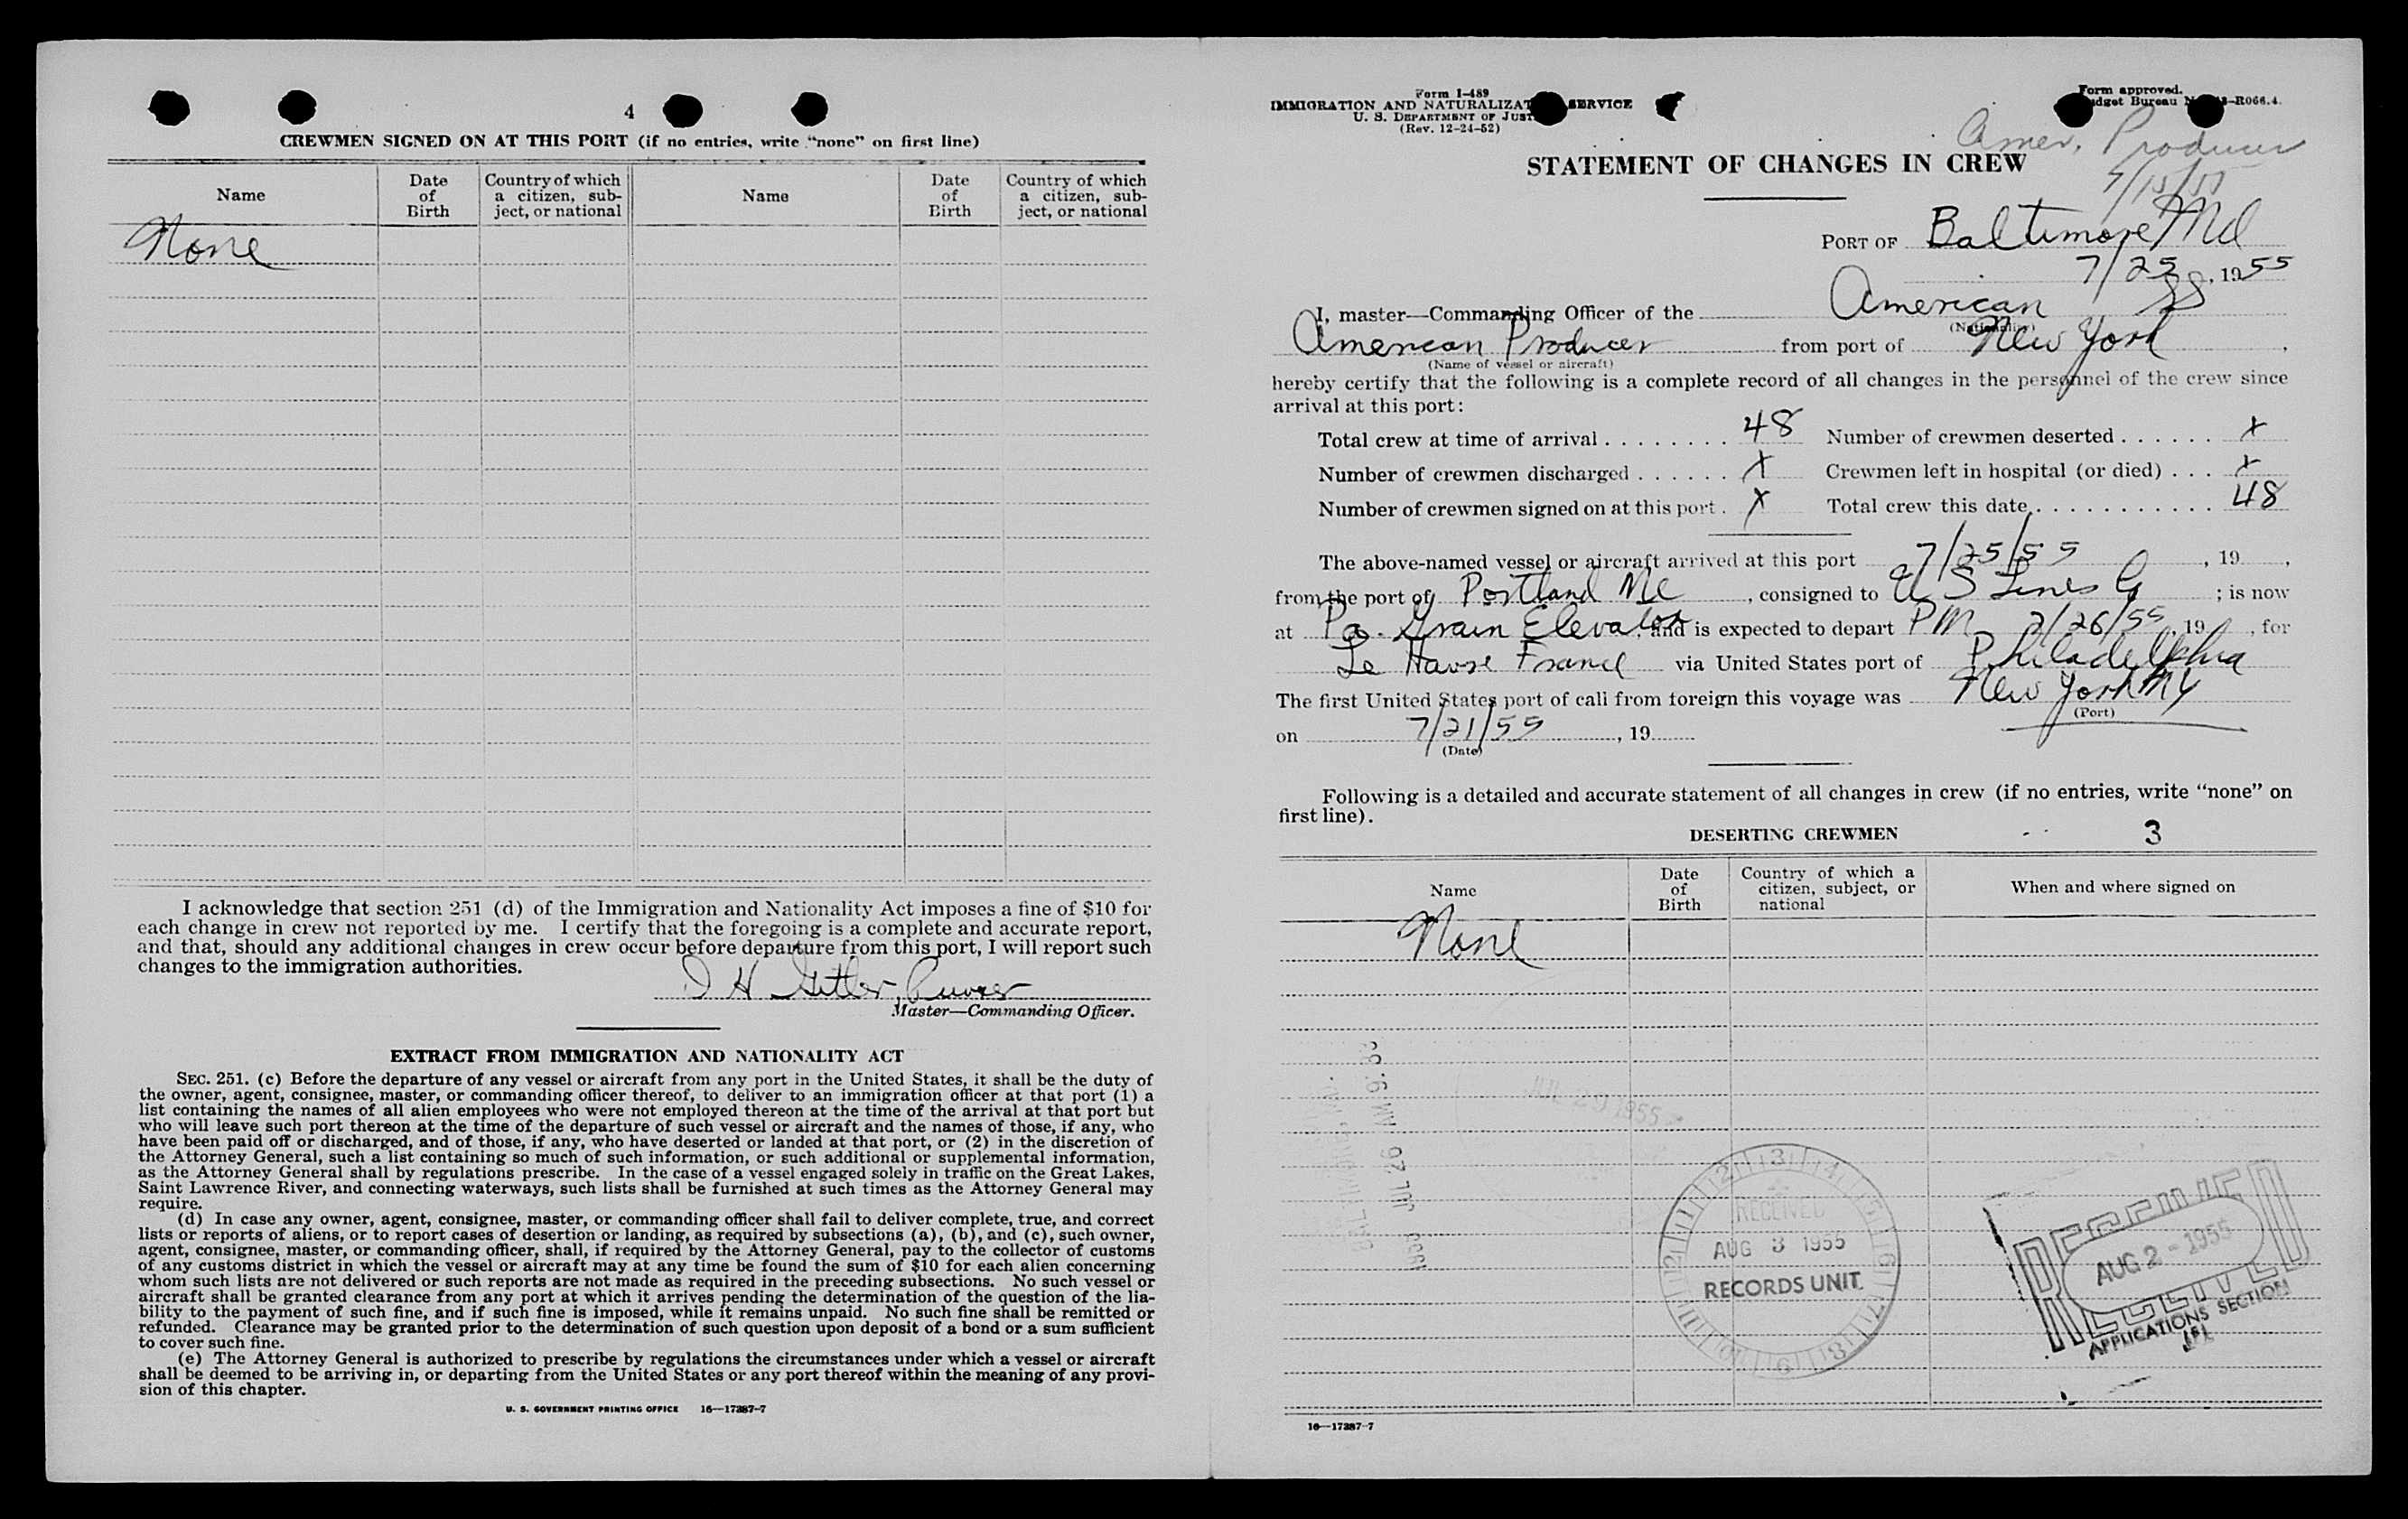 4
CREWMEN SIGNED ON AT THIS PORT (if no entries, write "none" on first line)
Name
Date of Birth
Country of which a citizen, subject, or national
Name
Date of Birth
Country of which a citizen, subject, or national
None
I acknowledge that section 251 (d) of the Immigration and Nationality Act imposes a fine of $10 for
each change in crew not reported by me. I certify that the foregoing is a complete and accurate report,
and that, should any additional changes in crew occur before departure from this port, I will report such
changes to the immigration authorities.
Purser
Master—Commanding Officer.
EXTRACT FROM IMMIGRATION AND NATIONALITY ACT
SEC. 251. (c) Before the departure of any vessel or aircraft from any port in the United States, it shall be the duty of
the owner, agent, consignee, master, or commanding officer thereof, to deliver to an immigration officer at that port (1) a
list containing the names of all alien employees who were not employed thereon at the time of the arrival at that port but
who will leave such port thereon at the time of the departure of such vessel or aircraft and the names of those, if any, who
have been paid off or discharged, and of those, if any, who have deserted or landed at that port, or (2) in the discretion of
the Attorney General, such a list containing so much of such information, or such additional or supplemental information,
as the Attorney General shall by regulations prescribe. In the case of a vessel engaged solely in traffic on the Great Lakes,
Saint Lawrence River, and connecting waterways, such lists shall be furnished at such times as the Attorney General may
require.
(d) In case any owner, agent, consignee, master, or commanding officer shall fail to deliver complete, true, and correct
lists or reports of aliens, or to report cases of desertion or landing, as required by subsections (a), (b), and (c), such owner,
agent, consignee, master, or commanding officer, shall, if required by the Attorney General, pay to the collector of customs
of any customs district in which the vessel or aircraft may at any time be found the sum of $10 for each alien concerning
whom such lists are not delivered or such reports are not made as required in the preceding subsections. No such vessel or
aircraft shall be granted clearance from any port at which it arrives pending the determination of the question of the lia-
bility to the payment of such fine, and if such fine is imposed, while it remains unpaid. No such fine shall be remitted or
refunded. Clearance may be granted prior to the determination of such question upon deposit of a bond or a sum sufficient
to cover such fine.
(e) The Attorney General is authorized to prescribe by regulations the circumstances under which a vessel or aircraft
shall be deemed to be arriving in, or departing from the United States or any port thereof within the meaning of any provi-
sion of this chapter.
U. S. GOVERNMENT PRINTING OFFICE 16—17387-7
Form I-489
IMMIGRATION AND NATURALIZAT SERVICE
U. S. DEPARTMENT OF JUST
(Rev. 12-24-52)
Form approved.
dget Bureau N -R066.4.
Amer. Producer
STATEMENT OF CHANGES IN CREW
PORT OF Baltimore Md
7/25, 1955
I, master—Commanding Officer of the American SS
(Nationality)
American Producer from port of New York,
(Name of vessel or aircraft)
hereby certify that the following is a complete record of all changes in the personnel of the crew since
arrival at this port:
Total crew at time of arrival 48 Number of crewmen deserted x
Number of crewmen discharged x Crewmen left in hospital (or died) x
Number of crewmen signed on at this port x Total crew this date 48
The above-named vessel or aircraft arrived at this port 7/25/55, 19 ,
from the port of Portland Me, consigned to U S Lines Co; is now
at Pa. Grain Elevator, and is expected to depart PM 7/26/55, 19 , for
Le Havre France via United States port of Philadelphia
The first United States port of call from foreign this voyage was New York NY
(Port)
on 7/21/55, 19
(Date)
Following is a detailed and accurate statement of all changes in crew (if no entries, write "none" on
first line).
DESERTING CREWMEN
3
Name
Date of Birth
Country of which a citizen, subject, or national
When and where signed on
None
1955 JUL 26 AM 9:
RECEIVED
AUG 3 1955
RECORDS UNIT
RECEIVED
AUG 2 - 1955
APPLICATIONS SECTION
16—17387-7